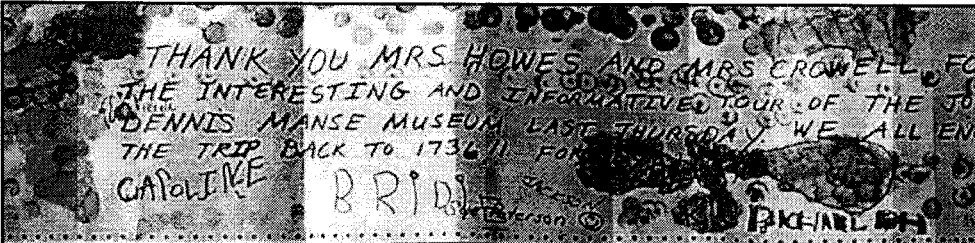 THANK YOU MRS HOWES AND MRS CROWELL FO
THE INTERESTING AND INFORMATIVE TOUR OF THE JO
DENNIS MANSE MUSEUM LAST THURSDAY WE ALL EN
THE TRIP BACK TO 1736!! FOR
CAROLINE
BRID
JACKSON
Paterson
RICHARD